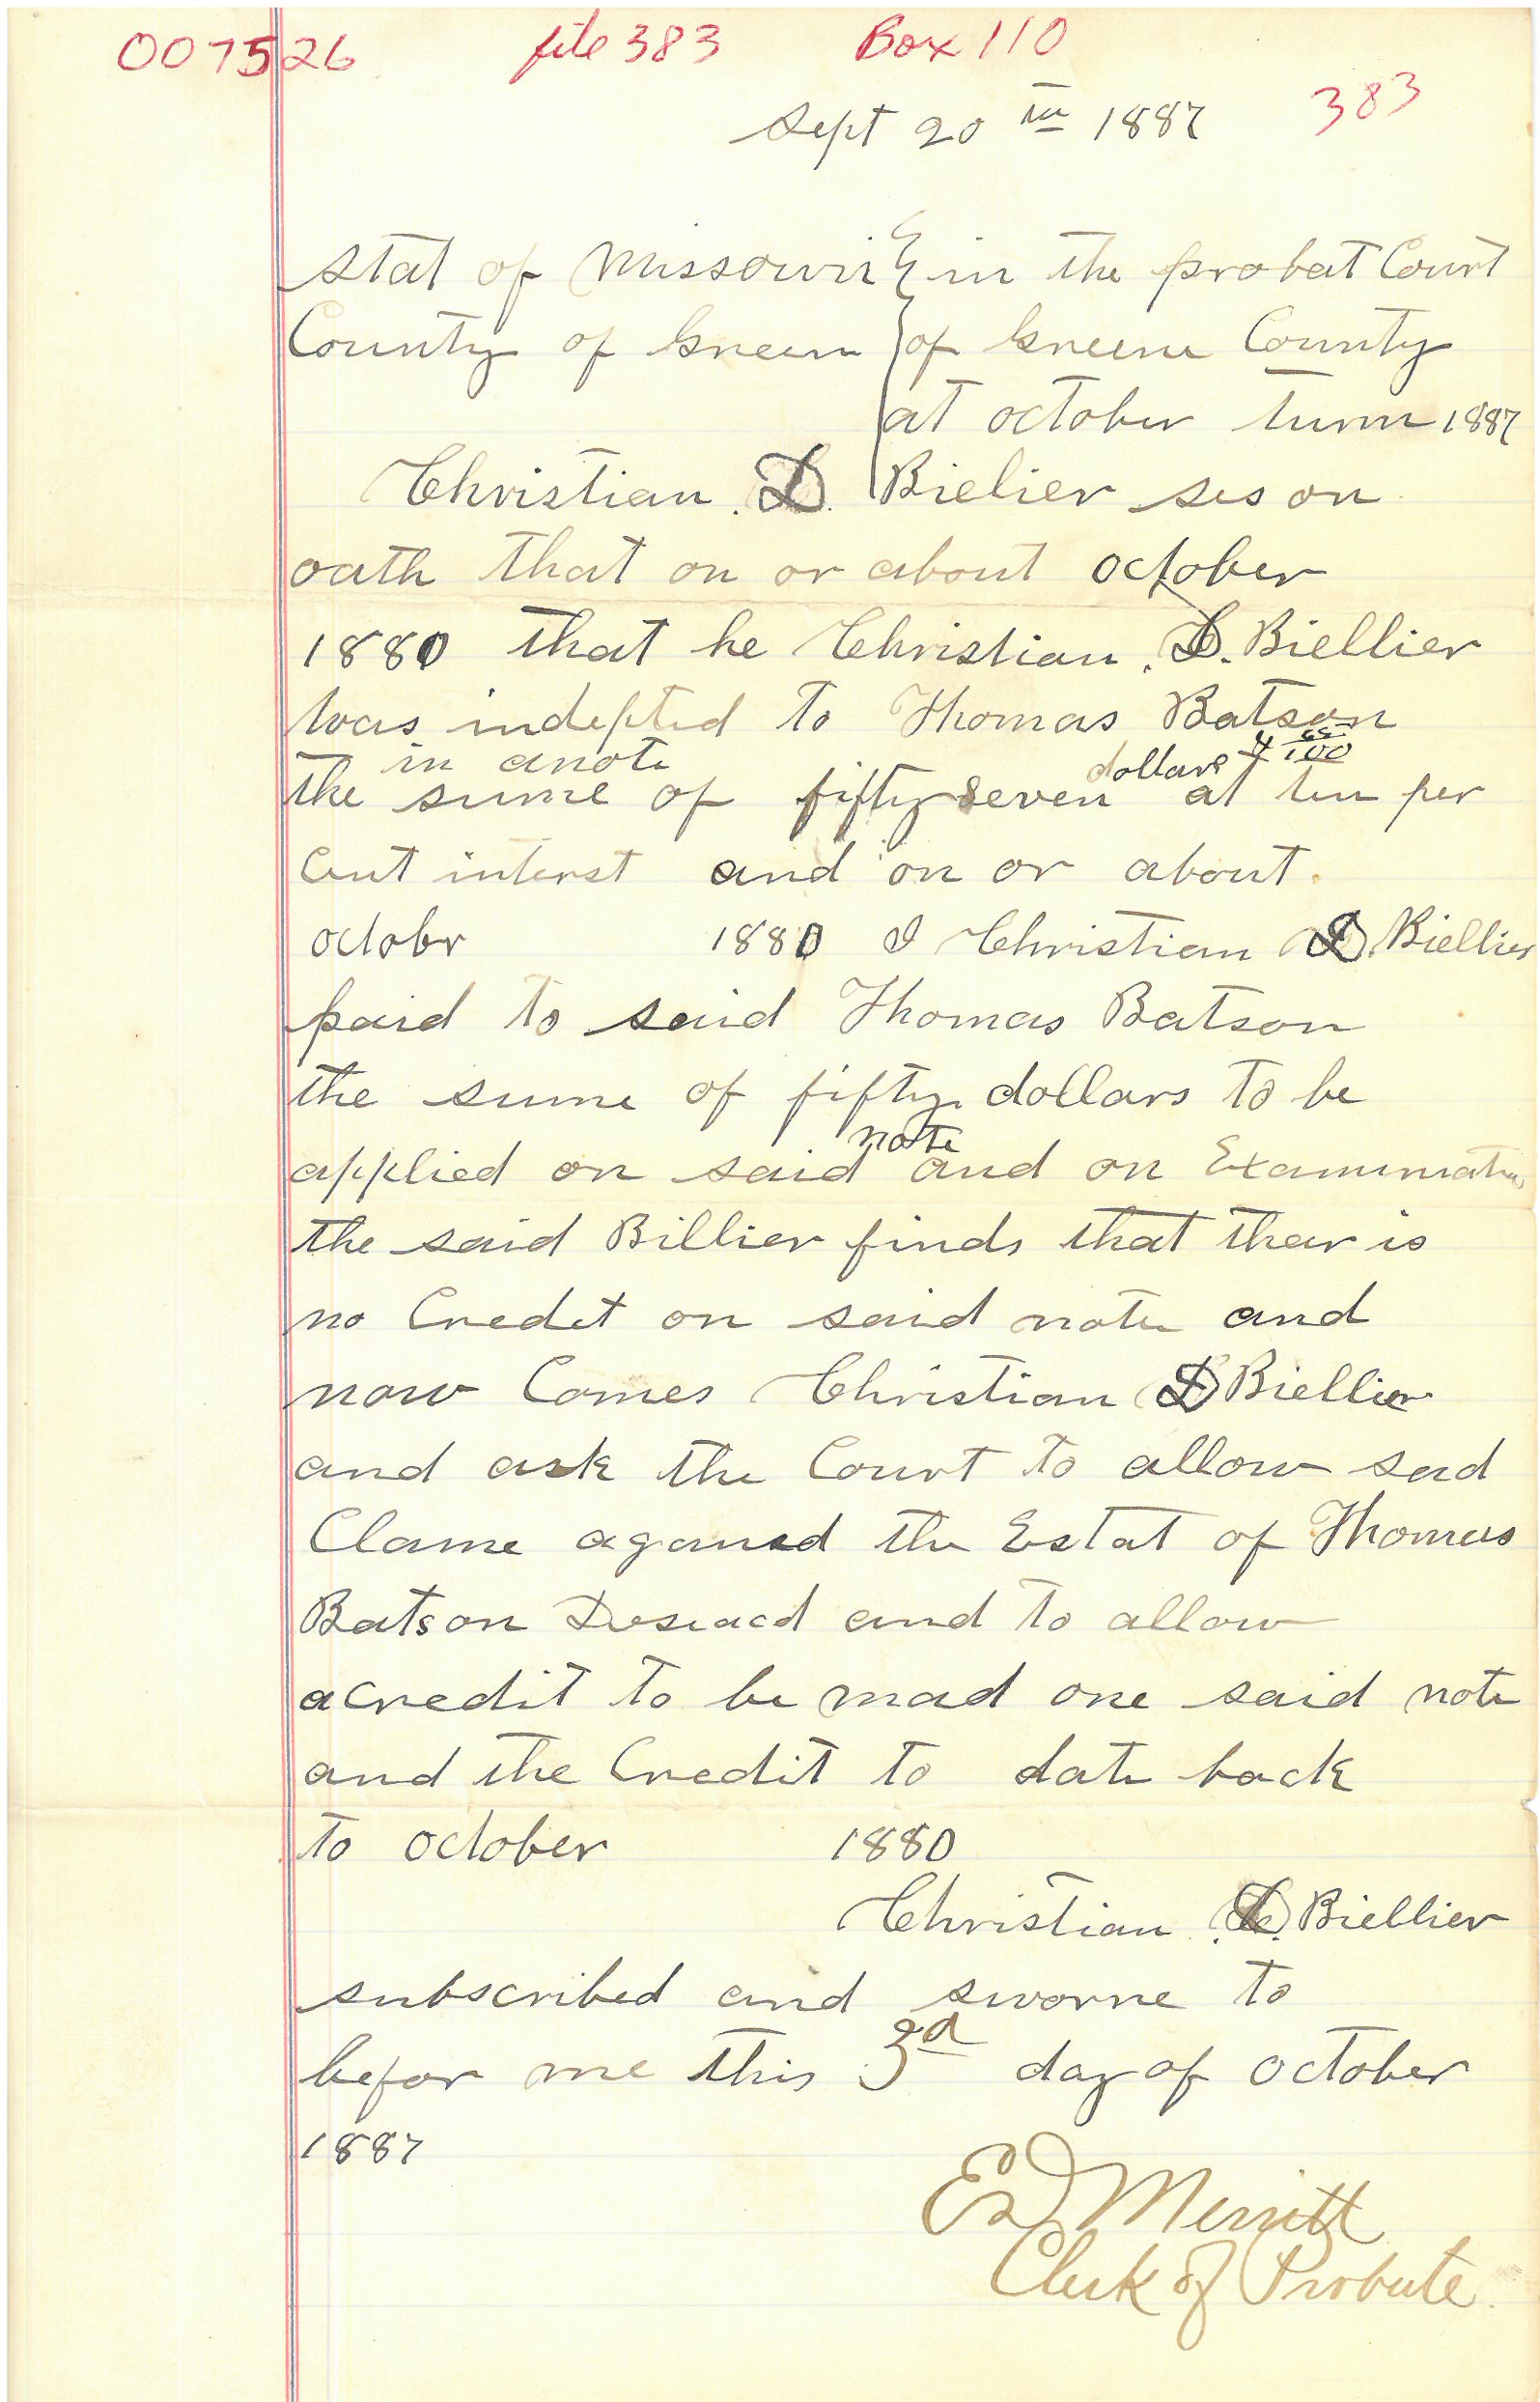 007526 file 383 Box 110
383
Sept 20 th 1887
Stat of Missouri } in the probat Court
County of Green } of Greene County
at october turm 1887
Christian . D. Bielier ses on
oath that on or about october
1880 that he Christian . D. Biellier
was indepted to Thomas Batson
in a note
dollars & /100
the sume of fifty seven at ten per
Cent interst and on or about
octobr 1880 I Christian D. Biellier
paid to said Thomas Batson
the sume of fifty dollars to be
note
applied on said and on Examination
the said Billier finds that thear is
no Credet on said note and
now Comes Christian D Biellier
and ask the Court to allow sad
Clame agansd the Estat of Thomas
Batson Deseacd and to allow
a credit to be mad one said note
and the Credit to date back
to october 1880
Christian . D. Biellier
subscribed and sworne to
befor me this 3d day of october
1887
Ed Merritt
Clerk of Probate